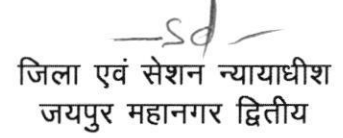 —Sd—
जिला एवं सेशन न्यायाधीश
जयपुर महानगर द्वितीय